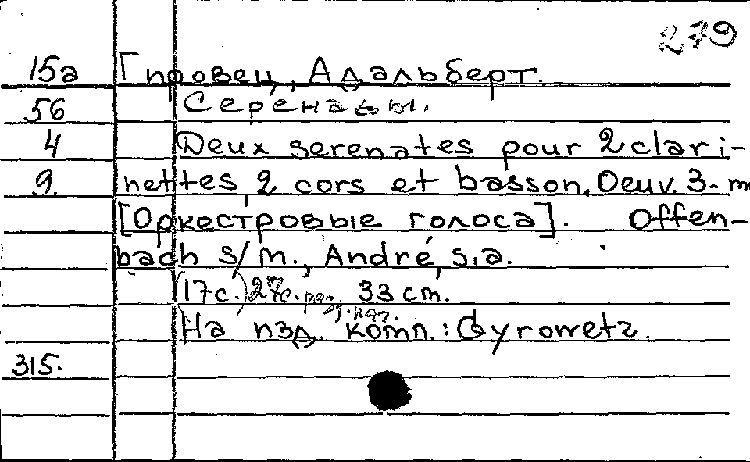 279
15а Гировец, Адальберт.
56 Серенады.
4 Deux serenates pour 2 clari-
9. nettes, 2 cors et basson. Oeuv. 3-m
[Оркестровые голоса]. Offen-
bach s/m., André, s.a.
(17с.) 27с. раз. 33 cm.
На изд. комп.: Gyrowetz.
315.